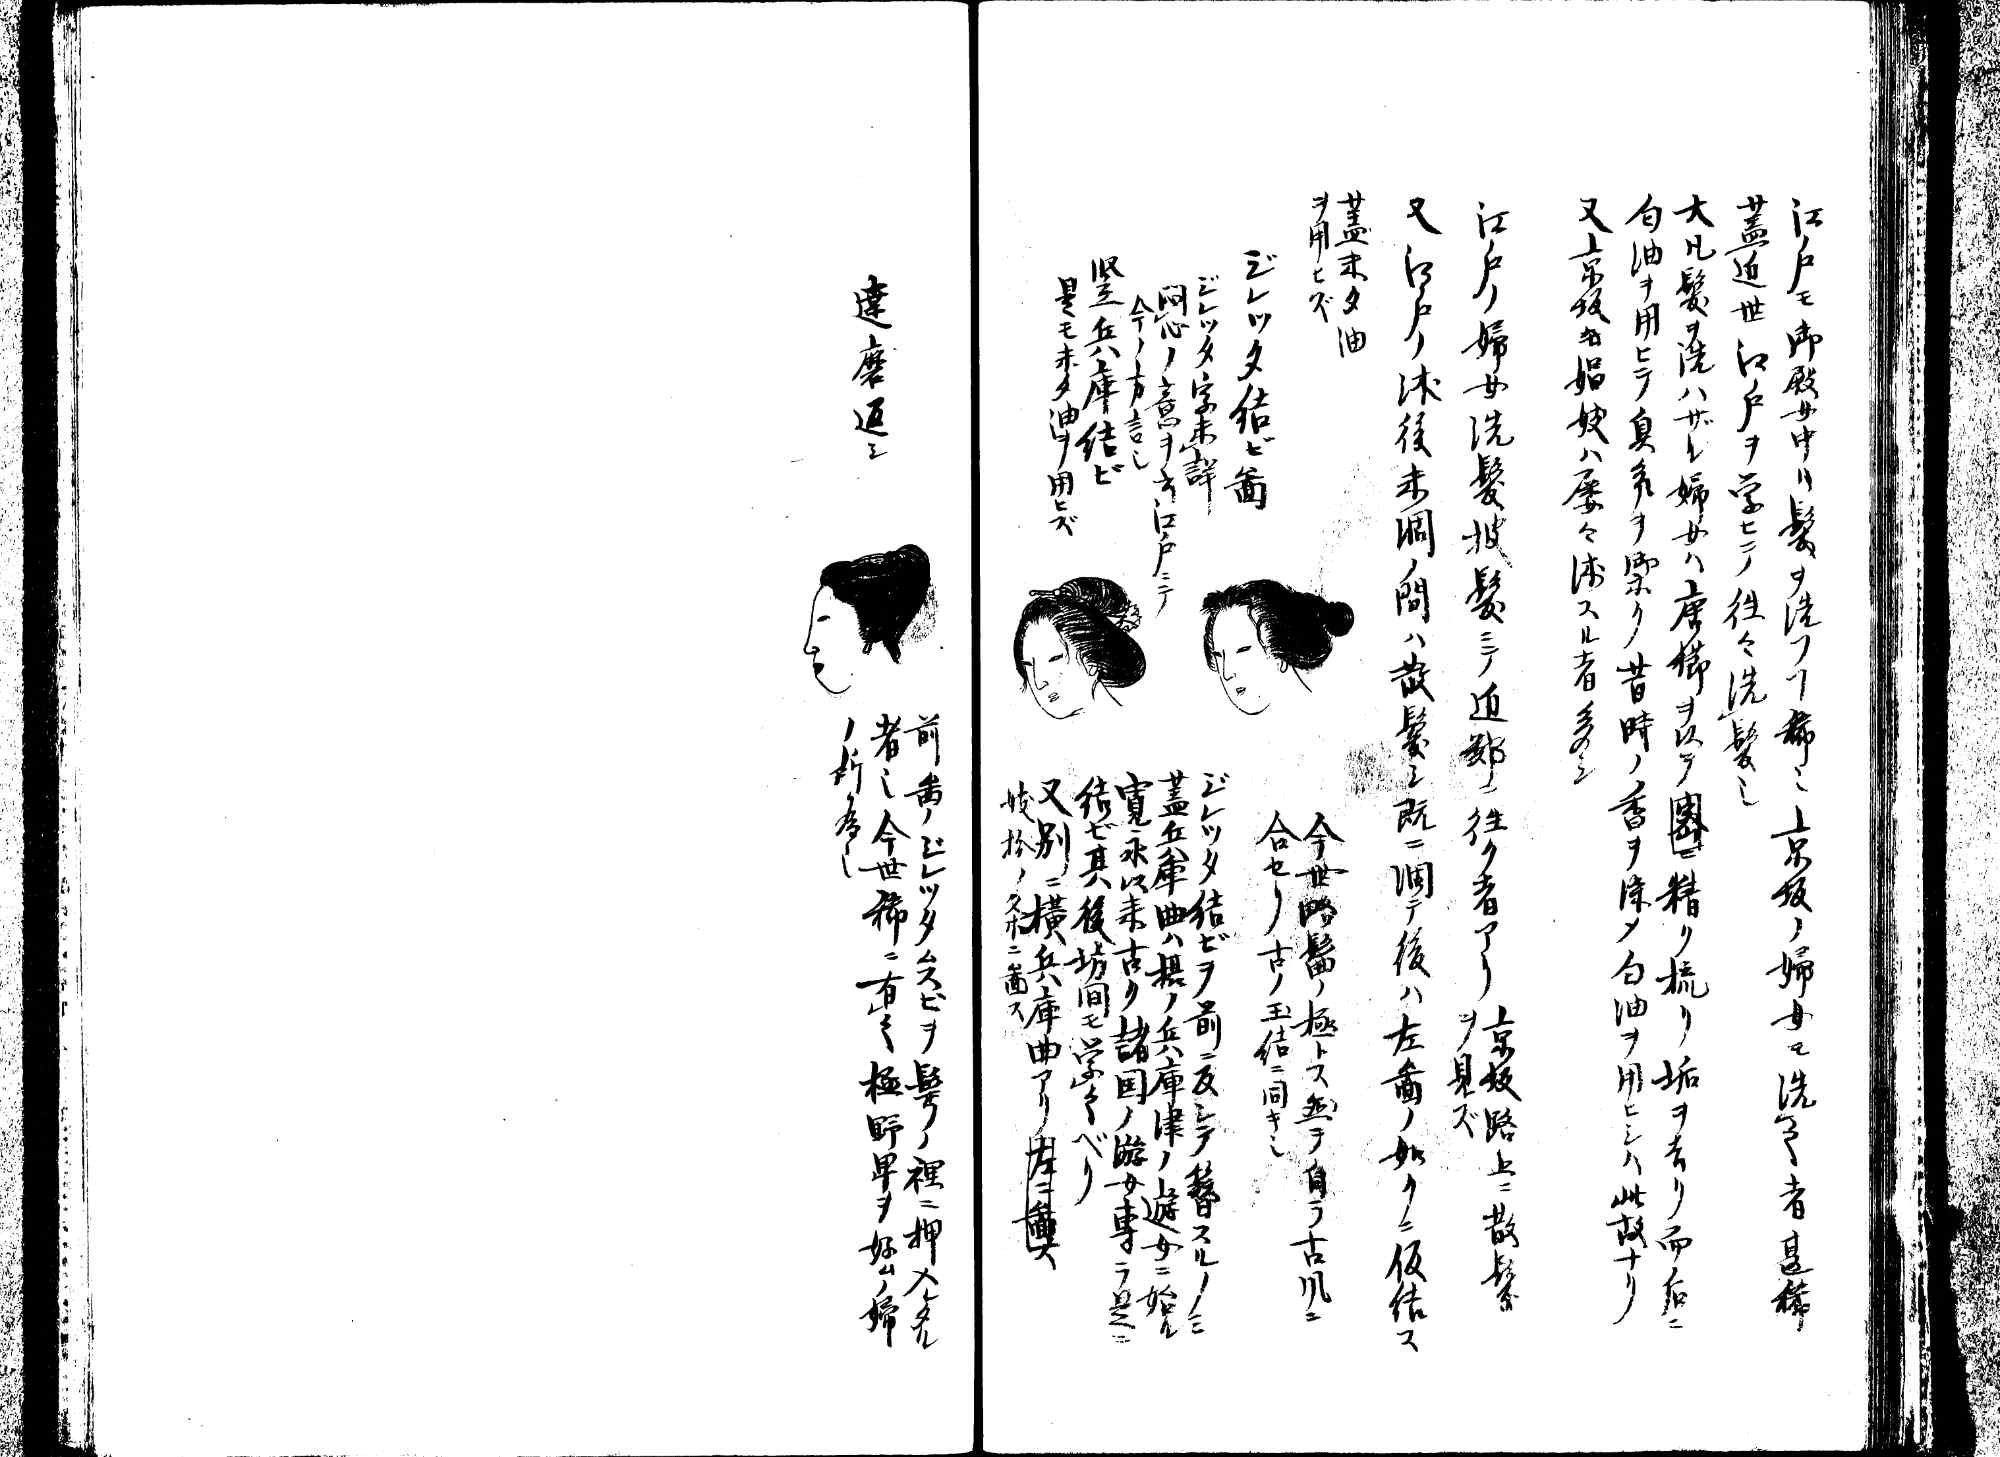 江戸モ御殿女中ハ髪ヲ洗フヿ稀也京坂ノ婦女モ洗之者甚稀
蓋近世江戸ヲ学ビテ往々洗髪也
大凡髪ヲ洗ハザル婦女ハ唐櫛ヲ以テ精ク梳リ垢ヲ去リ而后ニ
匂油ヲ用ヒテ臭気ヲ防クノ昔時ノ香ヲ除メ匂油ヲ用ヒシハ此故ナリ
又京坂モ娼妓ハ屡々沐スル者多シ
江戸ノ婦女洗髪披髪ニテ近鄰ニ往ク者アリ
京坂路上ニ散髪
ヲ見ズ
又江戸ノ沐後未涸ノ間ハ散髪シ既ニ涸テ後ハ左図ノ如クニ仮結ス
蓋未タ油
ヲ用ヒズ
ジレッタ結ビ図
ジレッタ字未詳
悶心ノ意ヲ云江戸ニテ
今ノ方言也
竪兵庫結ビ
是モ未タ油ヲ用ヒズ
今世略髷ノ極トス然ヲ自ラ古風ニ
合セリ古ノ玉結ニ同キ也
ジレッタ結ビヲ前ニ反シテ簪スルノミ
蓋兵庫曲ハ摂ノ兵庫津ノ遊女ニ始ル
寛永以来古ク諸国ノ遊女専ラ是ニ
結ビ其後坊間モ学之ベリ
又別ニ横兵庫曲アリ左ニ図ス
妓扮ノ条ニ図ス
達磨返シ
前図ノジレッタムスビヲ髷ノ裡ニ押入タル
者也今世稀ニ有之極野卑ヲ好ムノ婦
ノ所為也